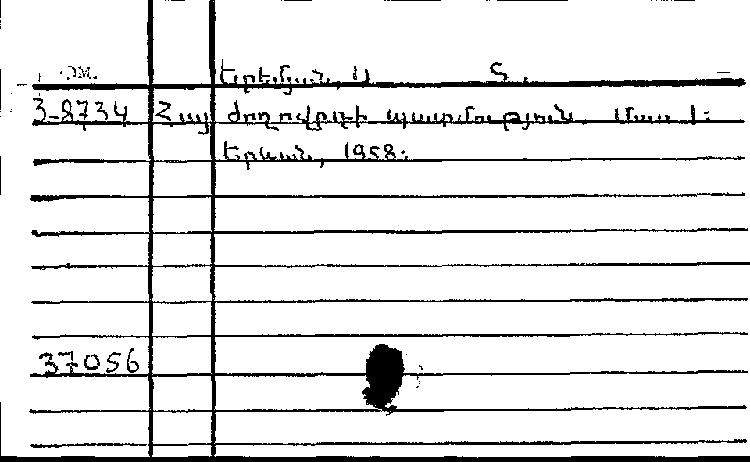 Երեմյան, Ս Տ.
3-8734 Հայ ժողովրդի պատմություն. Մաս 1:
Երևան, 1958:
37056